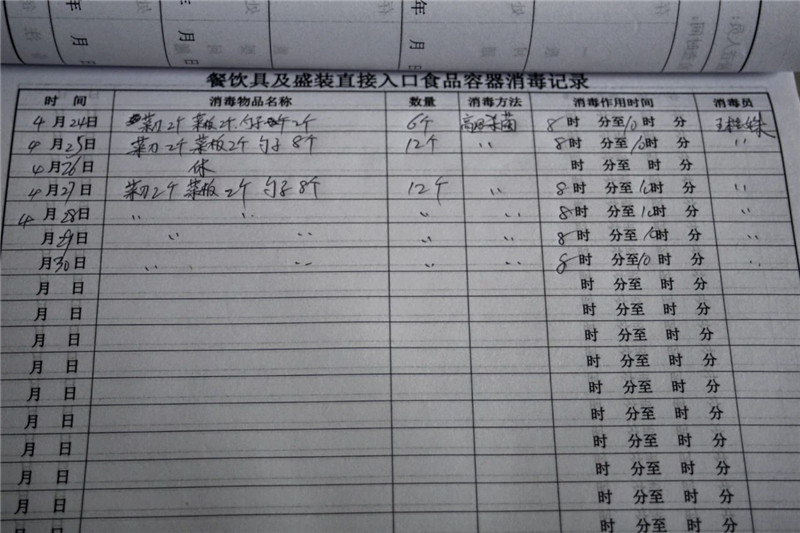 年 月 日
年 月 日
餐饮具及盛装直接入口食品容器消毒记录
时 间 消毒物品名称 数量 消毒方法 消毒作用时间 消毒员
4月24日 菜刀2个 菜板2个 勺子2个 6个 高温杀菌 8时 分至10时 分
4月25日 菜刀2个 菜板2个 勺子8个 12个 〃 8时 分至10时 分 〃
4月26日 休 时 分至 时 分
4月27日 菜刀2个 菜板2个 勺子8个 12个 〃 8时 分至10时 分 〃
4月28日 〃 〃 〃 〃 8时 分至10时 分 〃
月29日 〃 〃 〃 〃 8时 分至10时 分 〃
月30日 〃 〃 〃 〃 8时 分至10时 分 〃
月 日 时 分至 时 分
月 日 时 分至 时 分
月 日 时 分至 时 分
月 日 时 分至 时 分
月 日 时 分至 时 分
月 日 时 分至 时 分
月 日 时 分至 时 分
月 日 时 分至 时 分
月 日 时 分至 时 分
月 日 时 分至 时 分